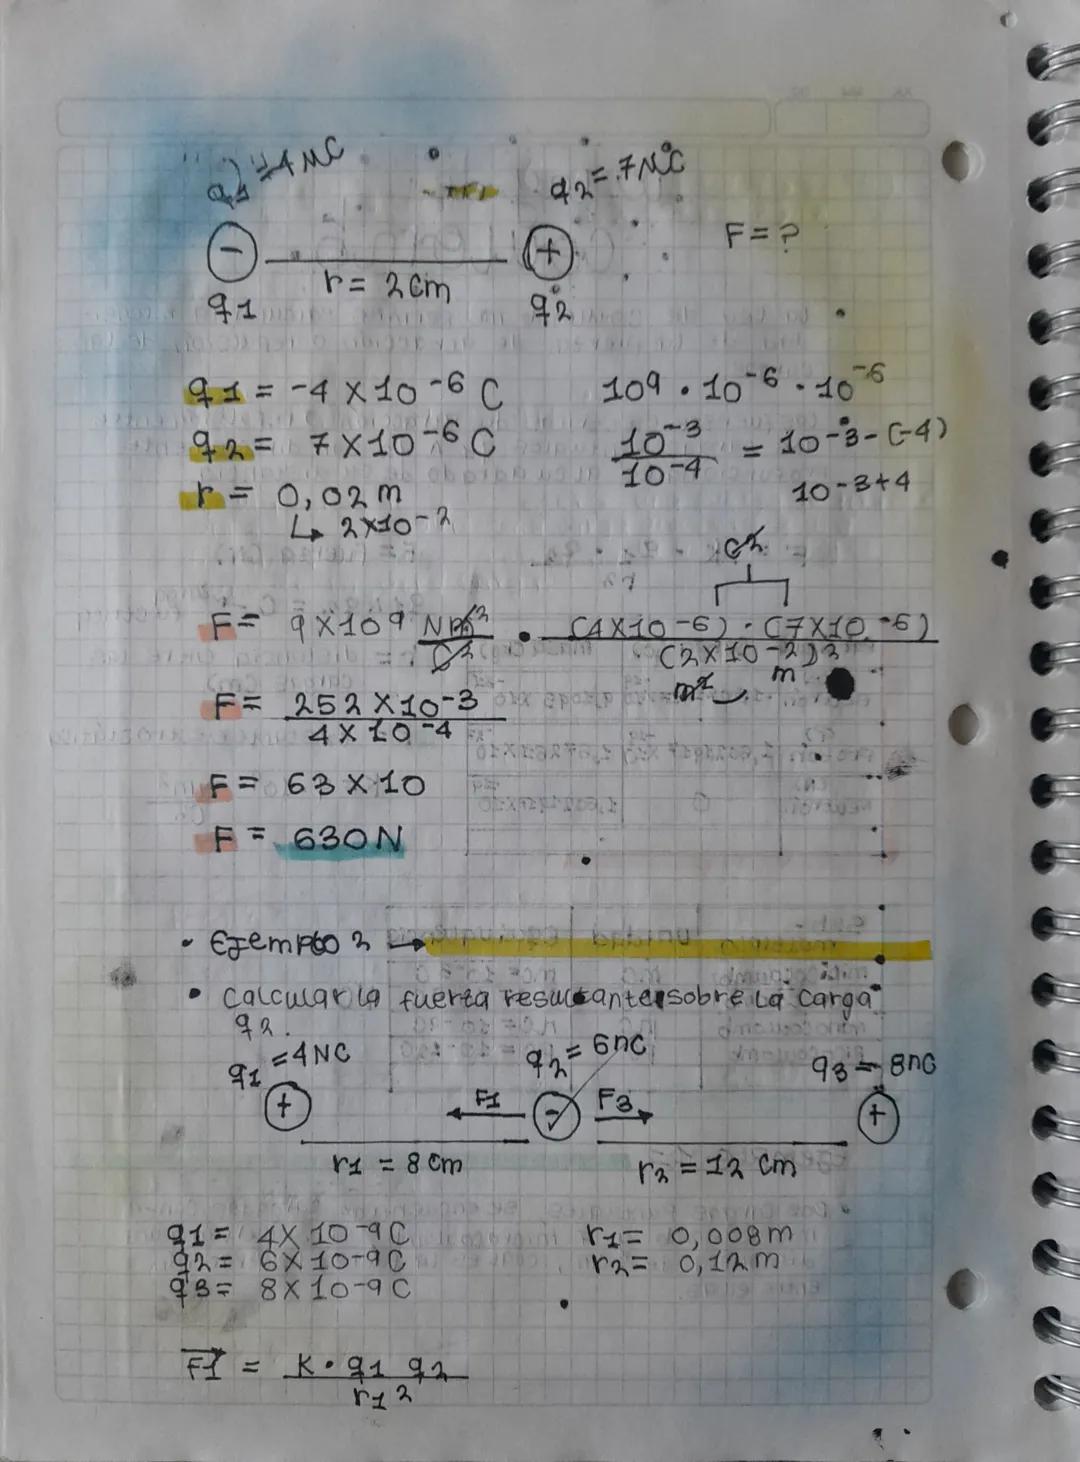 q1=4MC
q2=7MC
- +
F=?
r= 2cm
q1 q2
q1 = -4 X10-6 C
q2= 7X10-6 C
r = 0,02m
↳ 2X10-2
109 · 10-6 · 10-6
10-3 / 10-4 = 10-3-(-4)
10-3+4
C2
F= 9X109 Nm2/C2 · (4X10-6) · (7X10-6) / (2X10-2)2
m2 m
F= 252X10-3 / 4X10-4
F= 63X10
F= 630N
• Ejemplo 2 →
• Calcular la fuerza resultante sobre la carga
q2.
q1=4NC q2=6nC q3=8nC
+ F1 - F3 +
r1 = 8cm r2=12 cm
q1= 4X10-9C
q2= 6X10-9C
q3= 8X10-9C
r1= 0,008m
r2= 0,12m
F1 = K·q1 q2 / r1 2